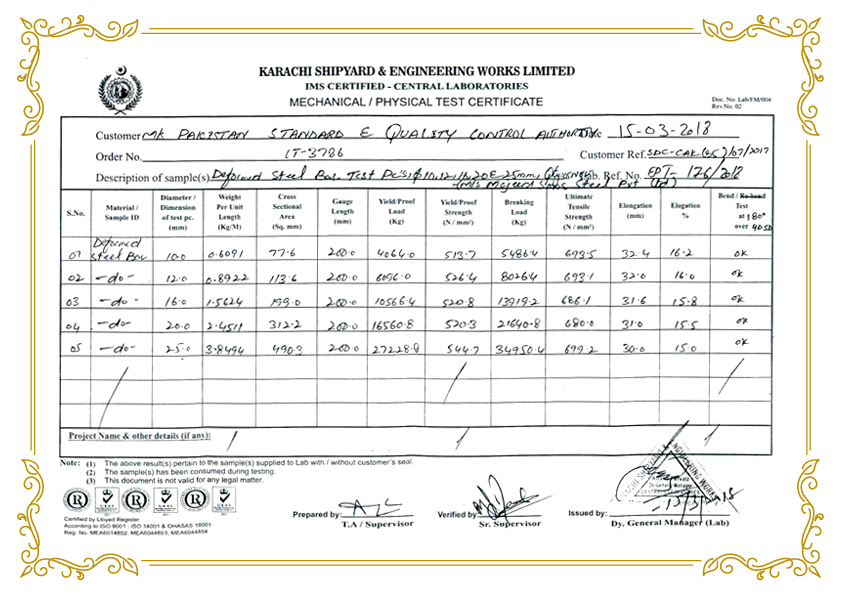 KARACHI SHIPYARD & ENGINEERING WORKS LIMITED
IMS CERTIFIED - CENTRAL LABORATORIES
MECHANICAL / PHYSICAL TEST CERTIFICATE
Doc. No: Lab/FM/004
Rev No. 02
Customer M/s PAKISTAN STANDARD & QUALITY CONTROL AUTHORITY Date 15-03-2018
Order No. LT-3786 Customer Ref. SDC-CAK(05)/07/2017
Description of sample(s) Deformed Steel Bar Test Pc's Lab. Ref. No. EPT- 126/2018
(M/s Majeed Sons Steel Pvt Ltd)
S.No. Material / Sample ID Diameter / Dimension of test pc. (mm) Weight Per Unit Length (Kg/M) Cross Sectional Area (Sq. mm) Gauge Length (mm) Yield/Proof Load (Kg) Yield/Proof Strength (N / mm²) Breaking Load (Kg) Ultimate Tensile Strength (N / mm²) Elongation (mm) Elogation % Bend / Re-bend Test at 180° over 4D 5D
01 Deformed Steel Bar 10.0 0.6091 77.6 200.0 4064.0 513.7 5486.4 693.5 32.4 16.2 ok
02 -do- 12.0 0.8922 113.6 200.0 6096.0 526.4 8026.4 693.1 32.0 16.0 ok
03 -do- 16.0 1.5624 199.0 200.0 10566.4 520.8 13919.2 686.1 31.6 15.8 ok
04 -do- 20.0 2.4511 312.2 200.0 16560.8 520.3 21640.8 680.0 31.0 15.5 ok
05 -do- 25.0 3.8494 490.3 200.0 27228.8 544.7 34950.4 699.2 30.0 15.0 ok
Project Name & other details (if any):
Note: (1) The above result(s) pertain to the sample(s) supplied to Lab with / without customer's seal.
(2) The sample(s) has been consumed during testing.
(3) This document is not valid for any legal matter.
Certified by Lloyed Register
According to ISO 9001 : ISO 14001 & OHASAS 18001
Reg. No. MEA6014852, MEA6044853, MEA6044854
Prepared by:
T.A / Supervisor
Verified by
Sr. Supervisor
Issued by:
Dy. General Manager (Lab)